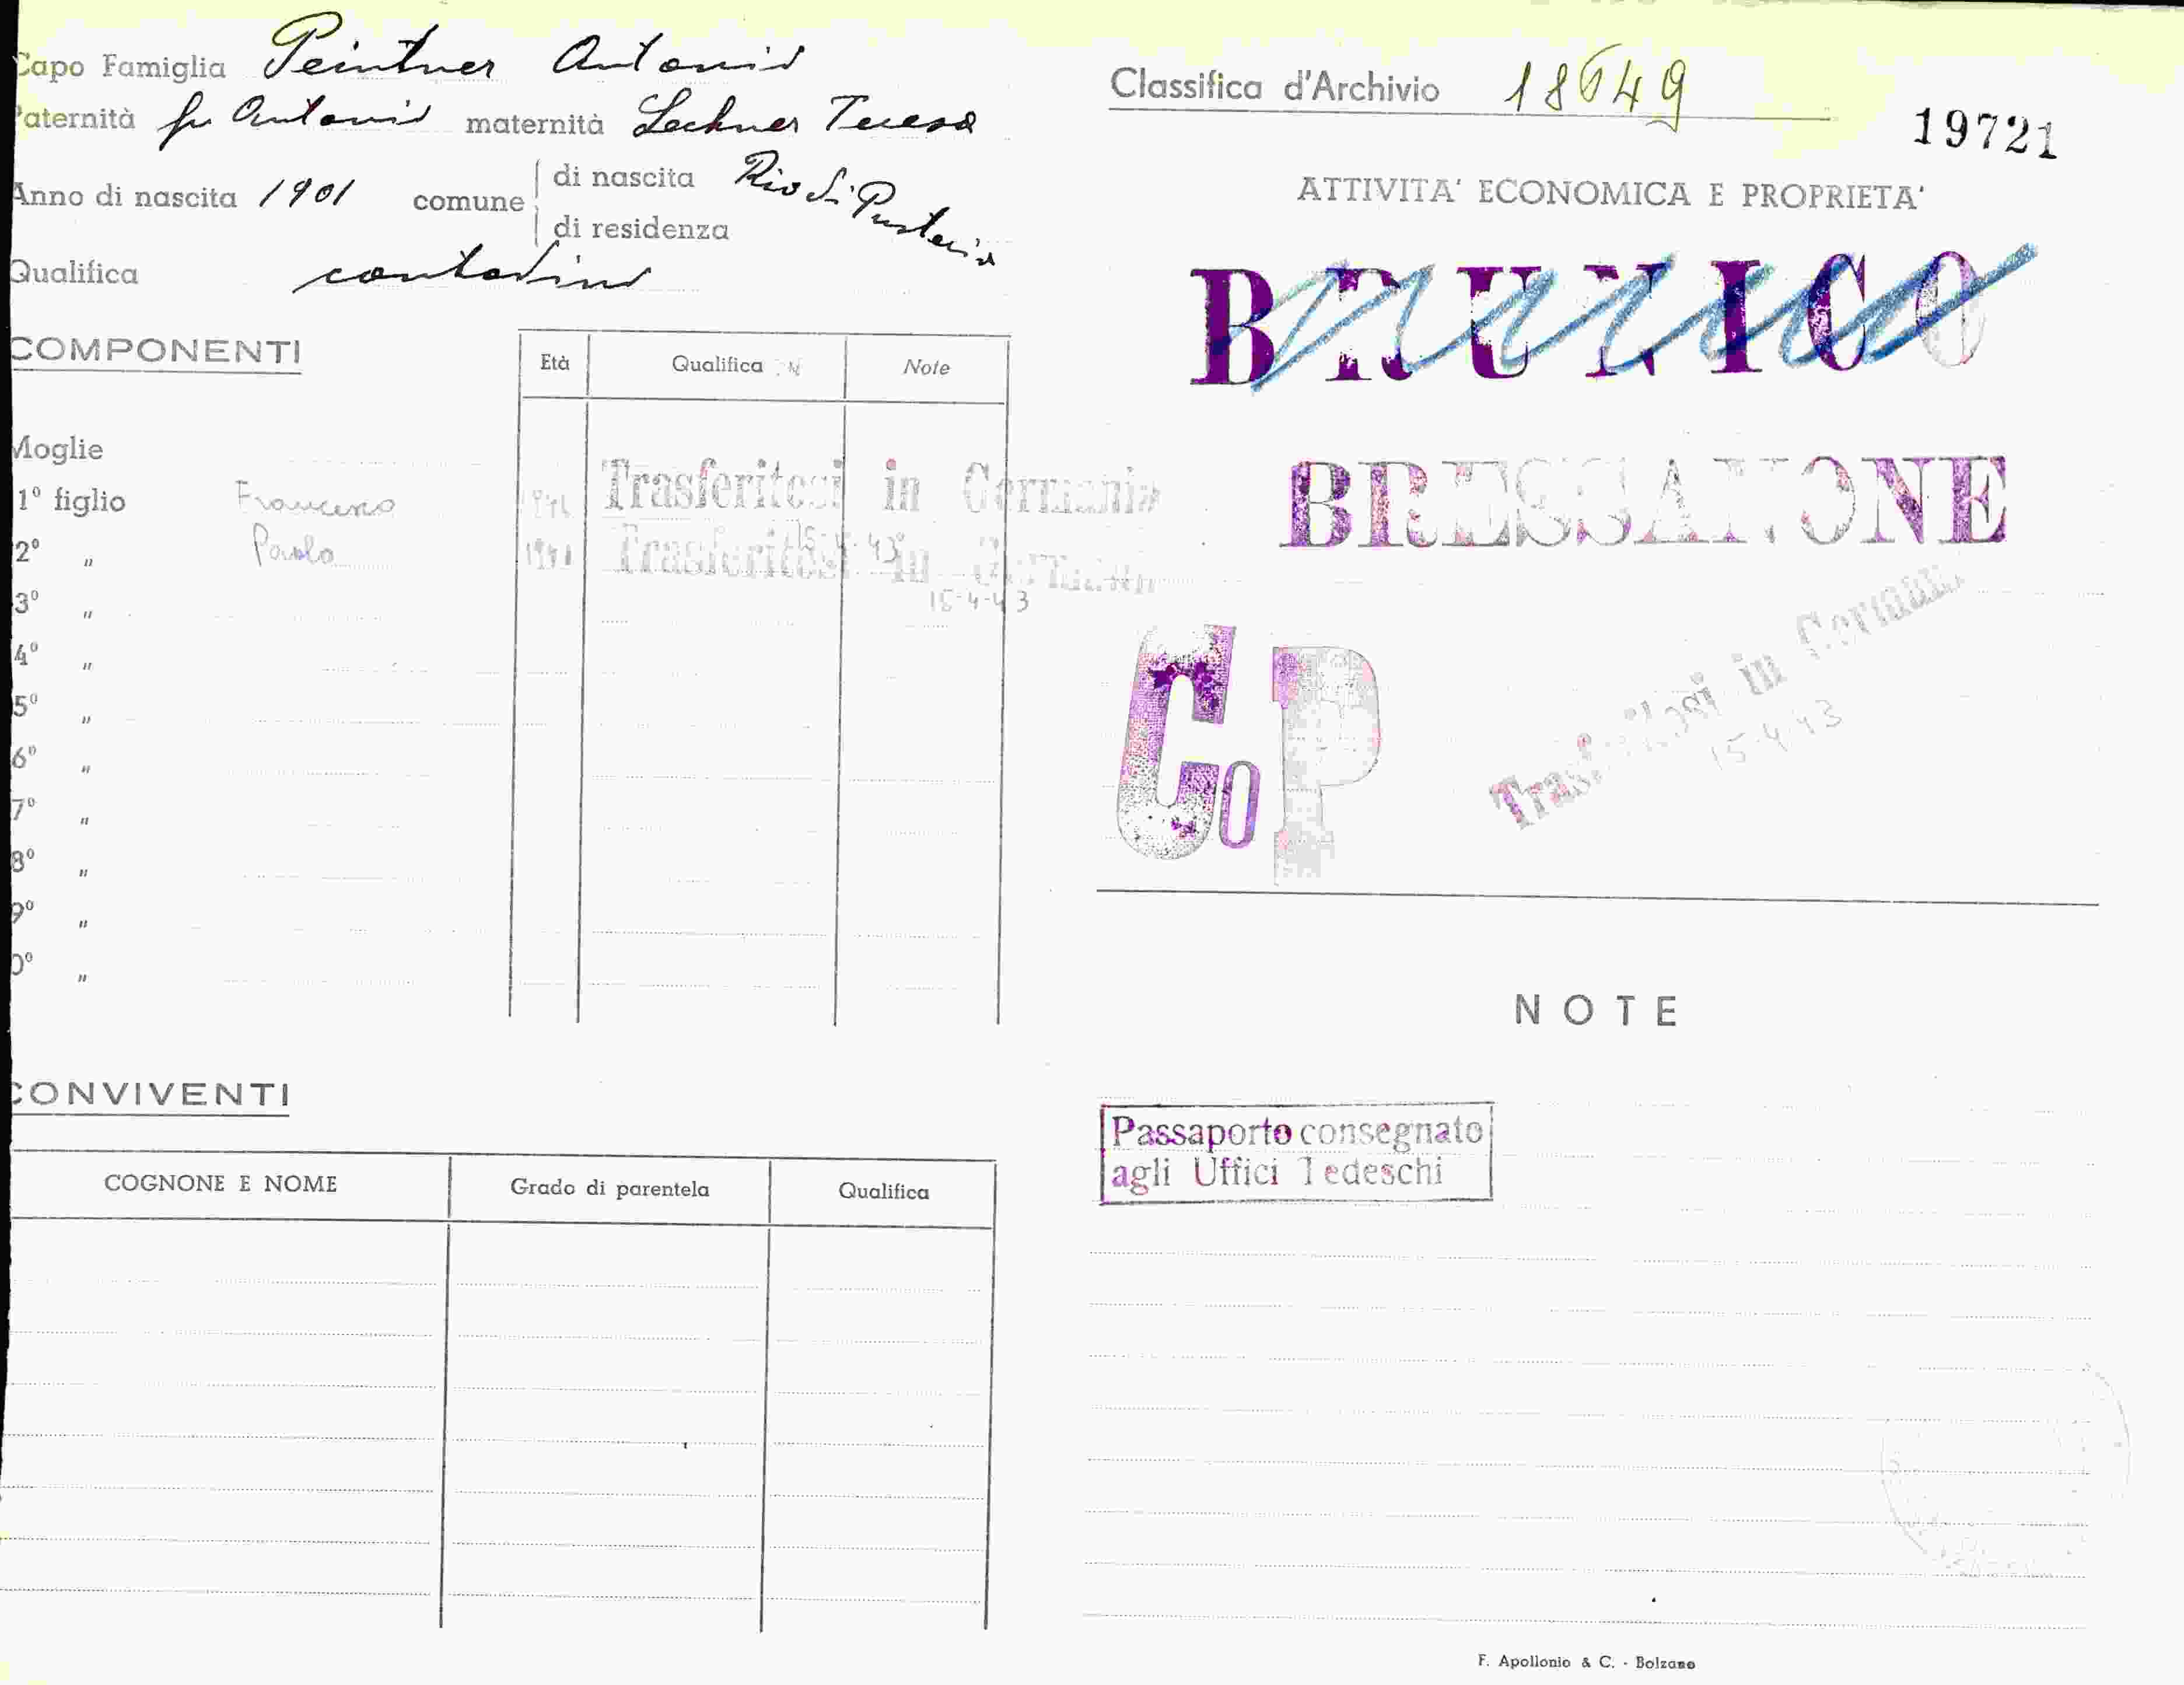 Capo Famiglia Peintner Antonio
Paternità fu Antonio maternità Lechner Teresa
Anno di nascita 1901 comune di nascita Rio di Pusteria
di residenza
Qualifica contadino
COMPONENTI
Età Qualifica Note
Moglie
1º figlio Francesco Trasferitosi in Germania
15-4-43
2º " Paolo Trasferitosi in Germania
15-4-43
3º "
4º "
5º "
6º "
7º "
8º "
9º "
0º "
CONVIVENTI
COGNONE E NOME Grado di parentela Qualifica
Classifica d'Archivio 18649
19721
ATTIVITA' ECONOMICA E PROPRIETA'
BRUNICO
BRESSANONE
Co P
Trasferitosi in Germania
15-4-43
NOTE
Passaporto consegnato
agli Uffici Tedeschi
F. Apollonio & C. - Bolzano